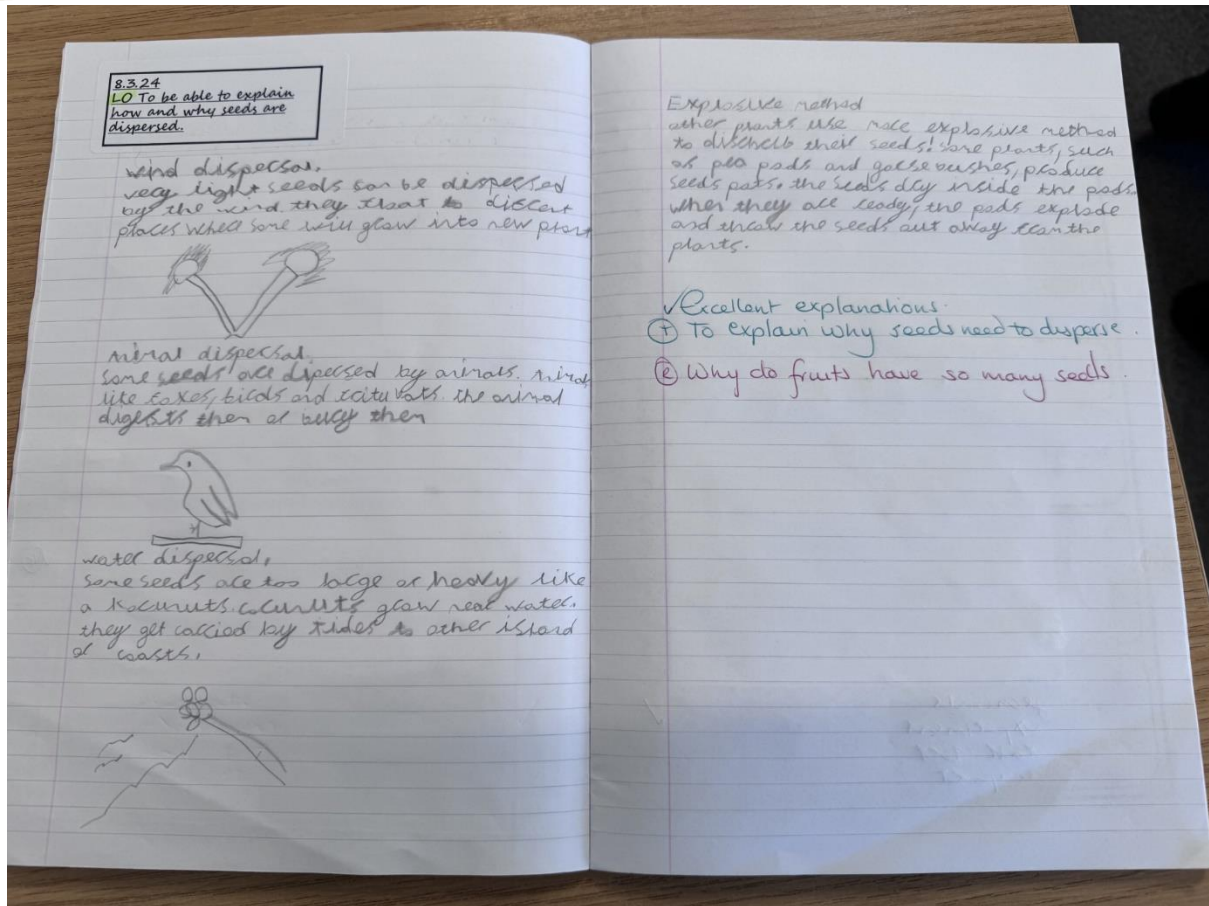 8.3.24
LO To be able to explain
how and why seeds are
dispersed.
wind dispersal.
very light seeds can be dispersed
by the wind they float to differt
places where some will grow into new plant
Animal dispersal.
Some seeds are dipersed by animals. Animal
like foxes, birds and the animal
digests them or bury them
water dispersal.
Some seeds are too large or heavy like
a kocunuts. cocunuts grow near water.
they get carried by tides to other island
or coasts.
Explosive method
other plants use more explosive method
to their seeds. some plants, such
as pea pods and gorse bushes, produce
seeds pots. the seeds dry inside the pods.
when they are ready, the pods explode
and throw the seeds out away from the
plants.
✓ Excellent explanations.
T To explain why seeds need to disperse.
e Why do fruits have so many seeds.